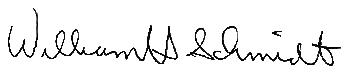 William H Schmidt